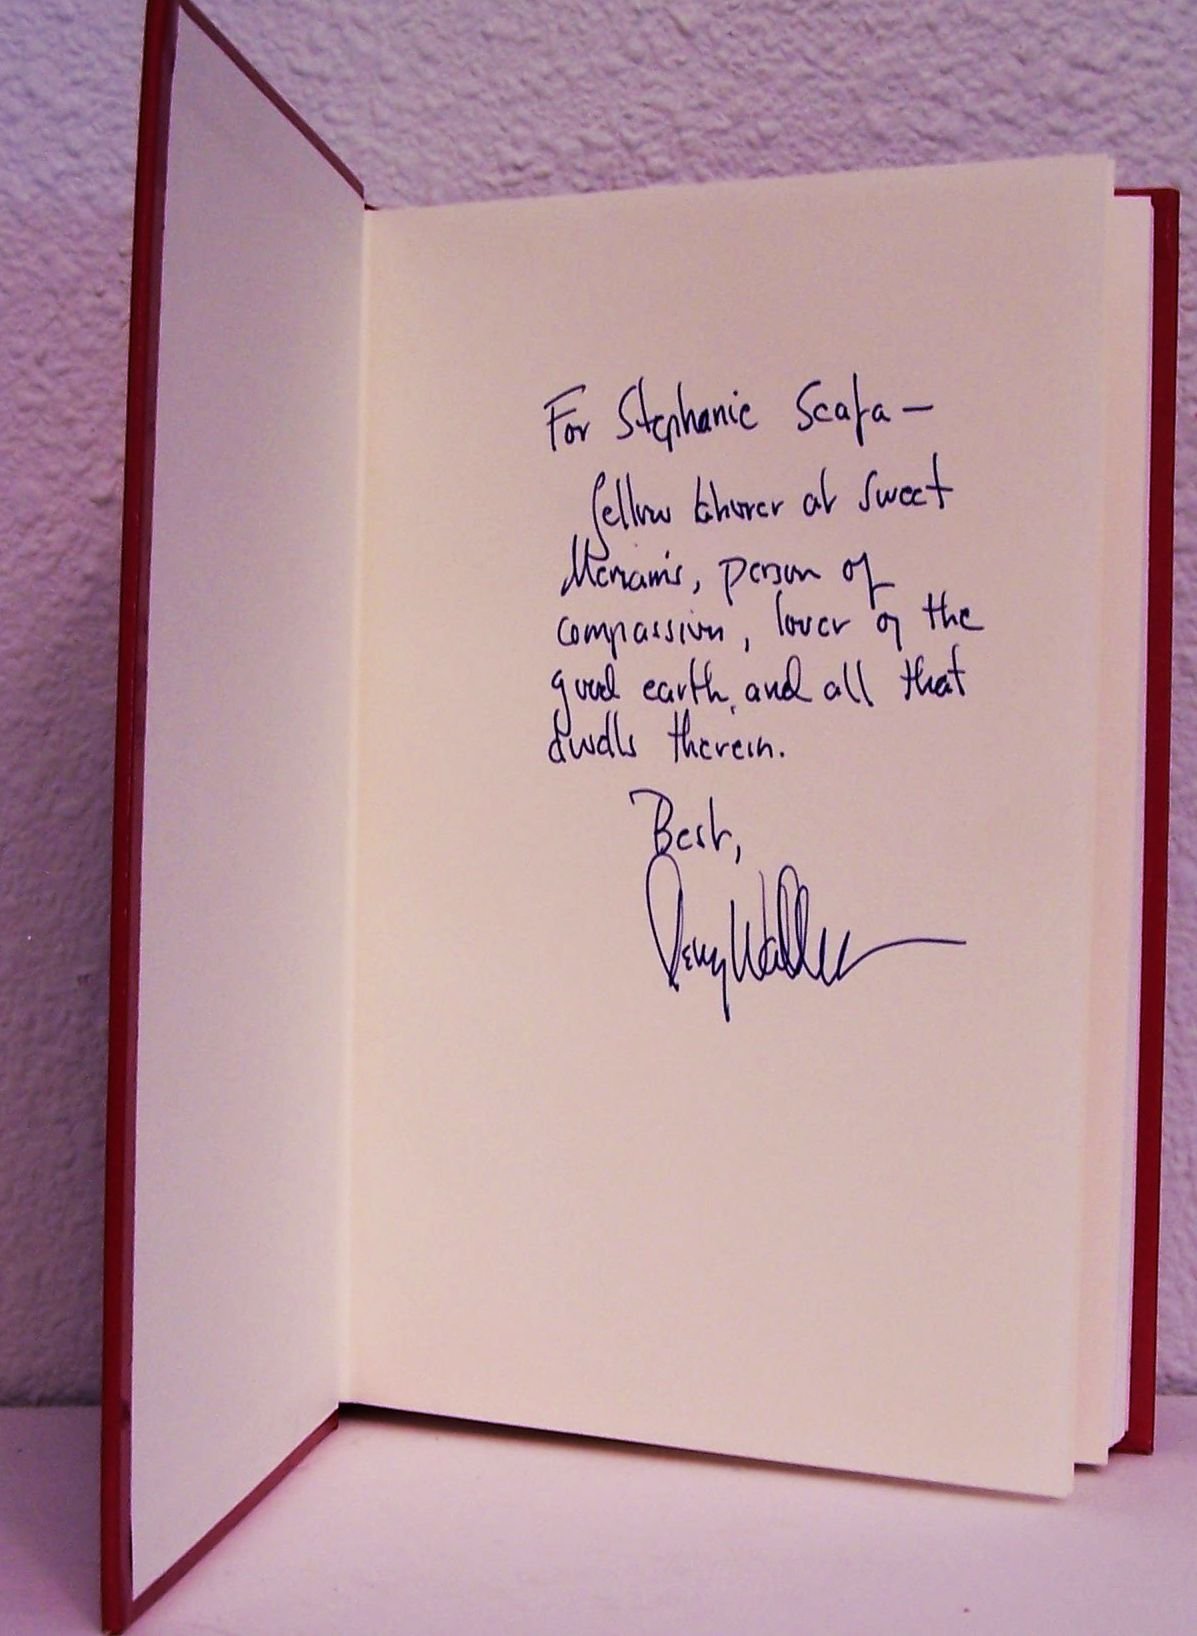 For Stephanie Scafa —
fellow laborer at Sweet
Merriam's, person of
compassion, lover of the
good earth, and all that
dwells therein.
Best,